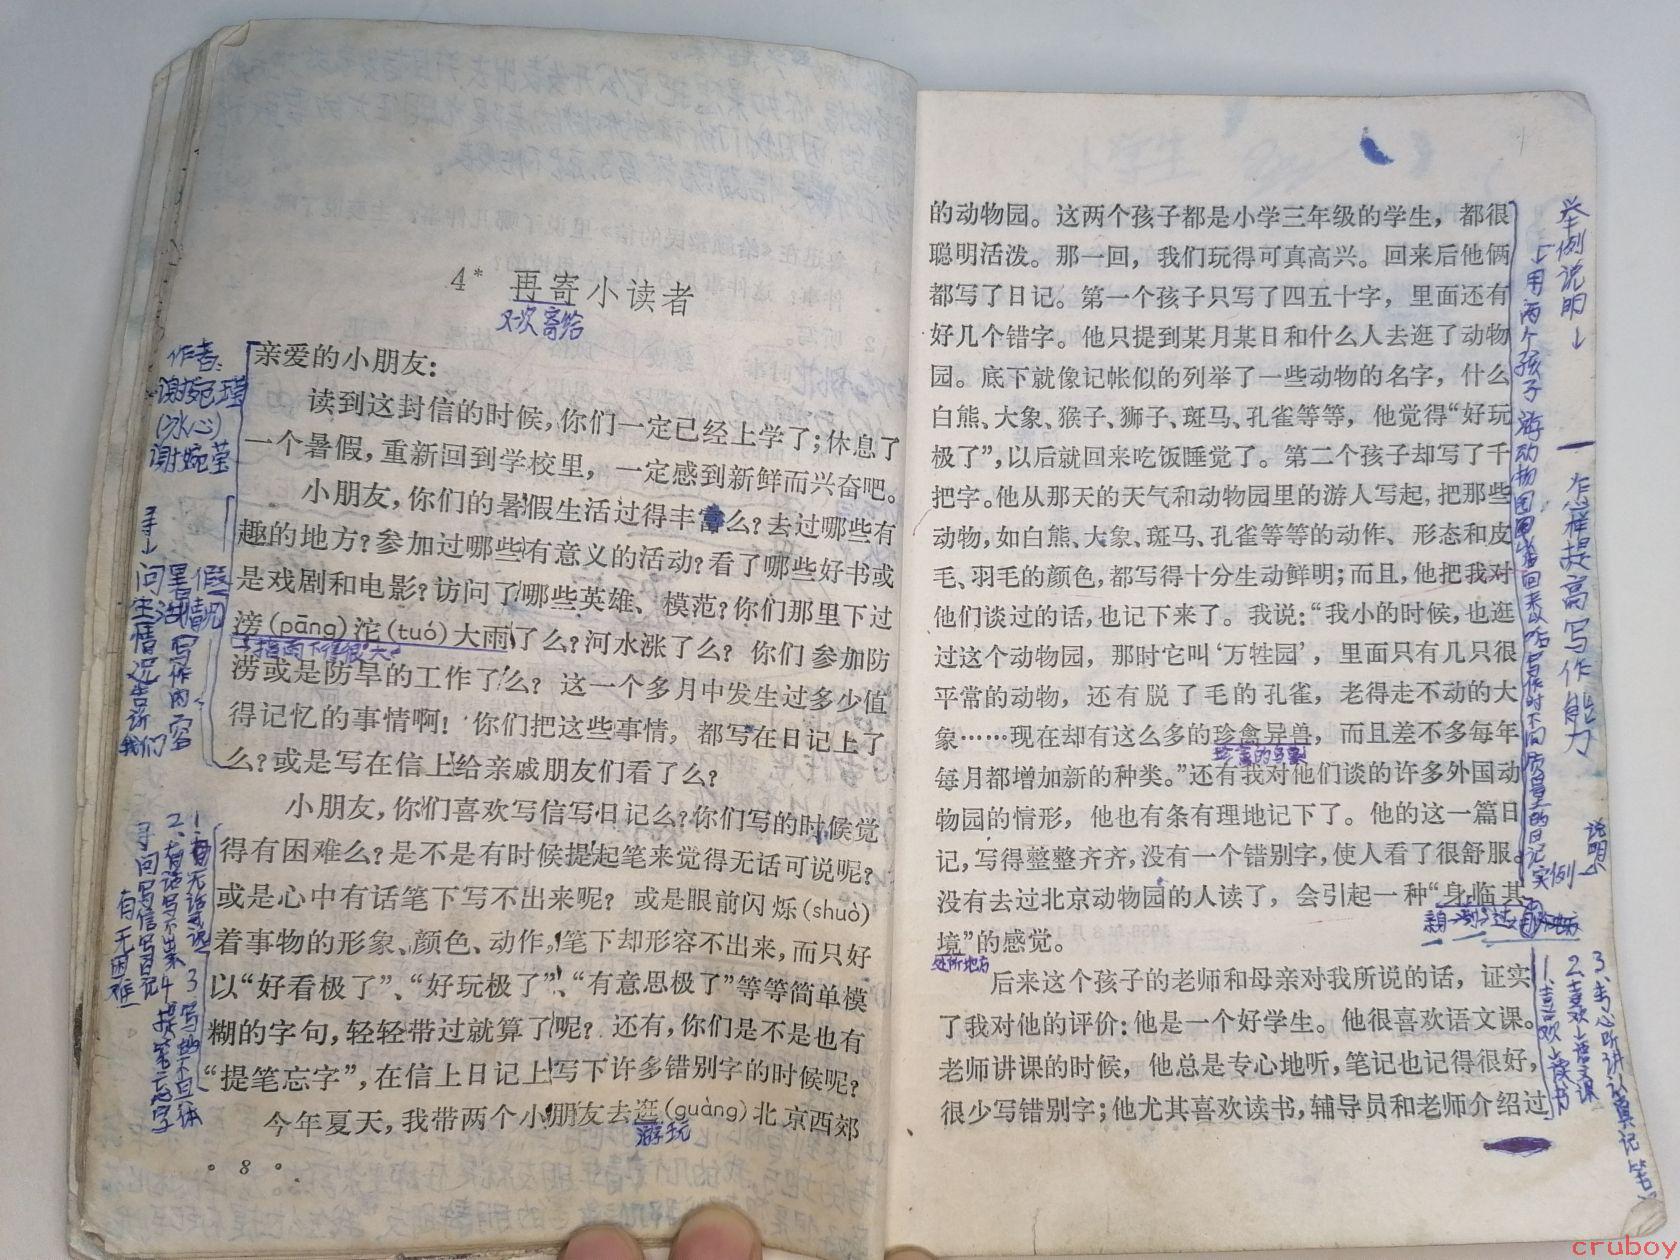 4* 再寄小读者
又次寄给
作者:
谢婉瑩
(冰心)
谢婉莹
亲爱的小朋友：
读到这封信的时候，你们一定已经上学了；休息了
一个暑假，重新回到学校里，一定感到新鲜而兴奋吧。
小朋友，你们的暑假生活过得丰富么？去过哪些有
趣的地方？参加过哪些有意义的活动？看了哪些好书或
是戏剧和电影？访问了哪些英雄、模范？你们那里下过
滂(pāng)沱(tuó)大雨了么？河水涨了么？你们参加防
指雨下得很大
涝或是防旱的工作了么？这一个多月中发生过多少值
得记忆的事情啊！你们把这些事情，都写在日记上了
么？或是写在信上给亲戚朋友们看了么？
小朋友，你们喜欢写信写日记么？你们写的时候觉
得有困难么？是不是有时候提起笔来觉得无话可说呢？
或是心中有话笔下写不出来呢？或是眼前闪烁(shuò)
着事物的形象、颜色、动作，笔下却形容不出来，而只好
以“好看极了”、“好玩极了”、“有意思极了”等等简单模
糊的字句，轻轻带过就算了呢？还有，你们是不是也有
“提笔忘字”，在信上日记上写下许多错别字的时候呢？
今年夏天，我带两个小朋友去逛(guàng)北京西郊
游玩
问暑假
生活情况
写作的内容
情况告诉
我们
1、无话可说
2、有话写不出来
3、写的不具体
4、提笔忘字
问写信写日记
有无困难
8
的动物园。这两个孩子都是小学三年级的学生，都很
聪明活泼。那一回，我们玩得可真高兴。回来后他俩
都写了日记。第一个孩子只写了四五十字，里面还有
好几个错字。他只提到某月某日和什么人去逛了动物
园。底下就像记帐似的列举了一些动物的名字，什么
白熊、大象、猴子、狮子、斑马、孔雀等等，他觉得“好玩
极了”，以后就回来吃饭睡觉了。第二个孩子却写了千
把字。他从那天的天气和动物园里的游人写起，把那些
动物，如白熊、大象、斑马、孔雀等等的动作、形态和皮
毛、羽毛的颜色，都写得十分生动鲜明；而且，他把我对
他们谈过的话，也记下来了。我说：“我小的时候，也逛
过这个动物园，那时它叫‘万牲园’，里面只有几只很
平常的动物，还有脱了毛的孔雀，老得走不动的大
象……现在却有这么多的珍禽异兽，而且差不多每年
每月都增加新的种类。”还有我对他们谈的许多外国动
物园的情形，他也有条有理地记下了。他的这一篇日
记，写得整整齐齐，没有一个错别字，使人看了很舒服。
没有去过北京动物园的人读了，会引起一种“身临其
境”的感觉。
处所地方
后来这个孩子的老师和母亲对我所说的话，证实
了我对他的评价：他是一个好学生。他很喜欢语文课。
老师讲课的时候，他总是专心地听，笔记也记得很好，
很少写错别字；他尤其喜欢读书，辅导员和老师介绍过
举例说明
用两个孩子游动物园回来以后写作时不同质量的日记实例
说明
一 怎样提高写作能力
1、喜欢读书
2、喜欢语文课
3、专心听讲认真记笔
cruboy